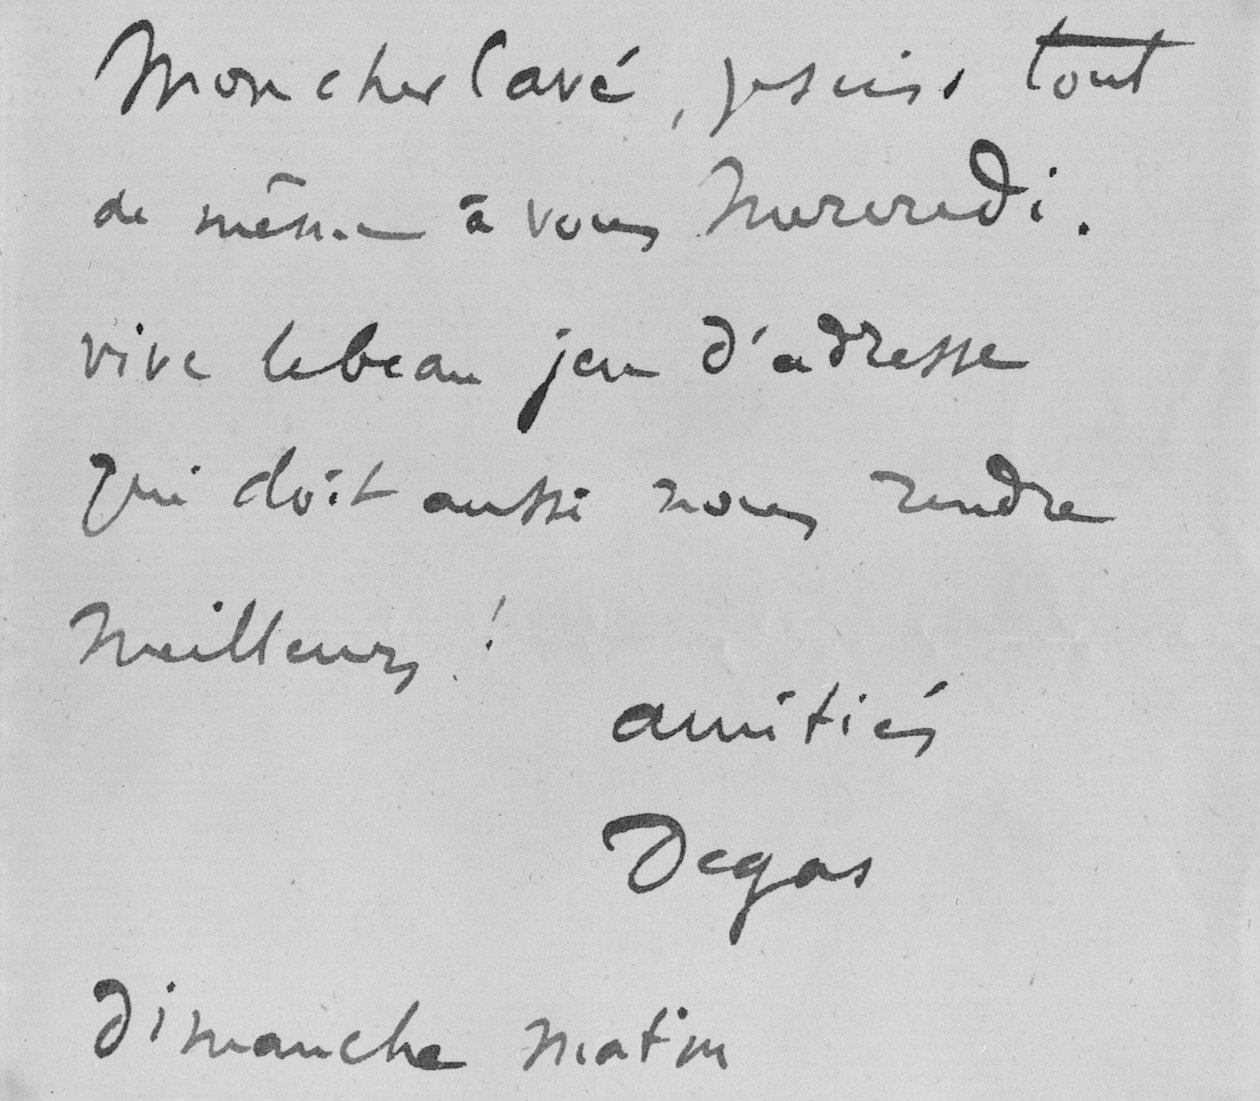 Mon cher Cavé, je suis tout
de même à vous Mercredi.
vive le beau jeu d'adresse
qui doit aussi nous rendre
Meilleurs !
amitiés
Degas
Dimanche matin